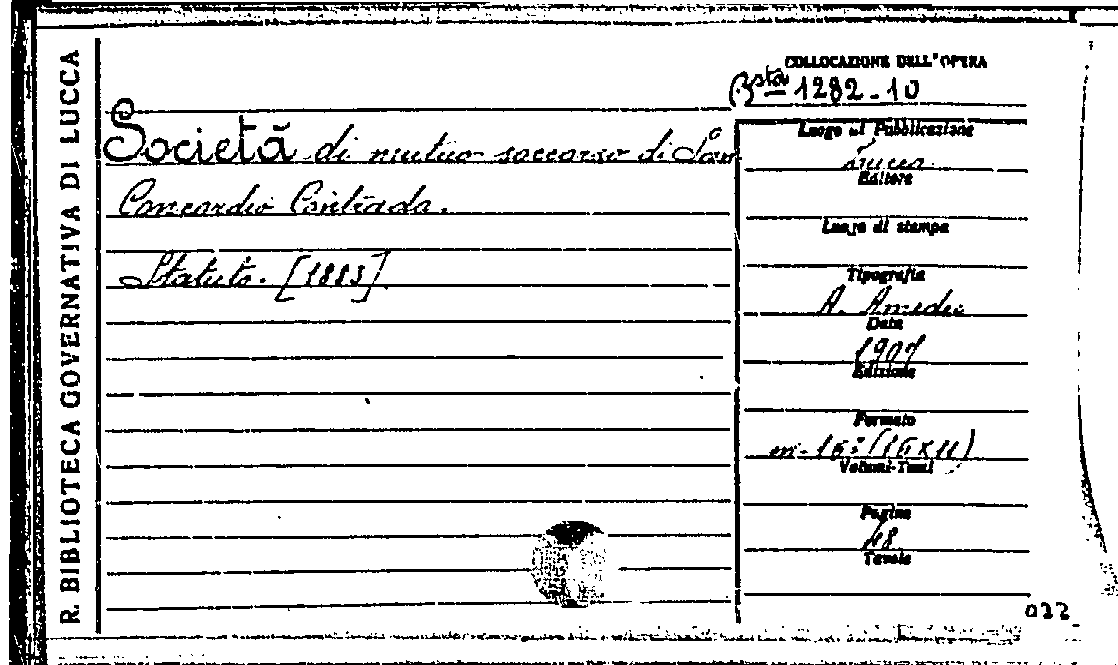 R. BIBLIOTECA GOVERNATIVA DI LUCCA
COLLOCAZIONE DELL'OPERA
Bsta 1282-10
Società di mutuo soccorso di San
Concordio Contrada.
Statuto. [1883]
Luogo di Pubblicazione
Lucca
Editore
Luogo di stampa
Tipografia
A. Amedei
Data
1907
Edizione
Formato
in-16° (16x11)
Volumi-Tomi
Pagine
48
Tavole
022